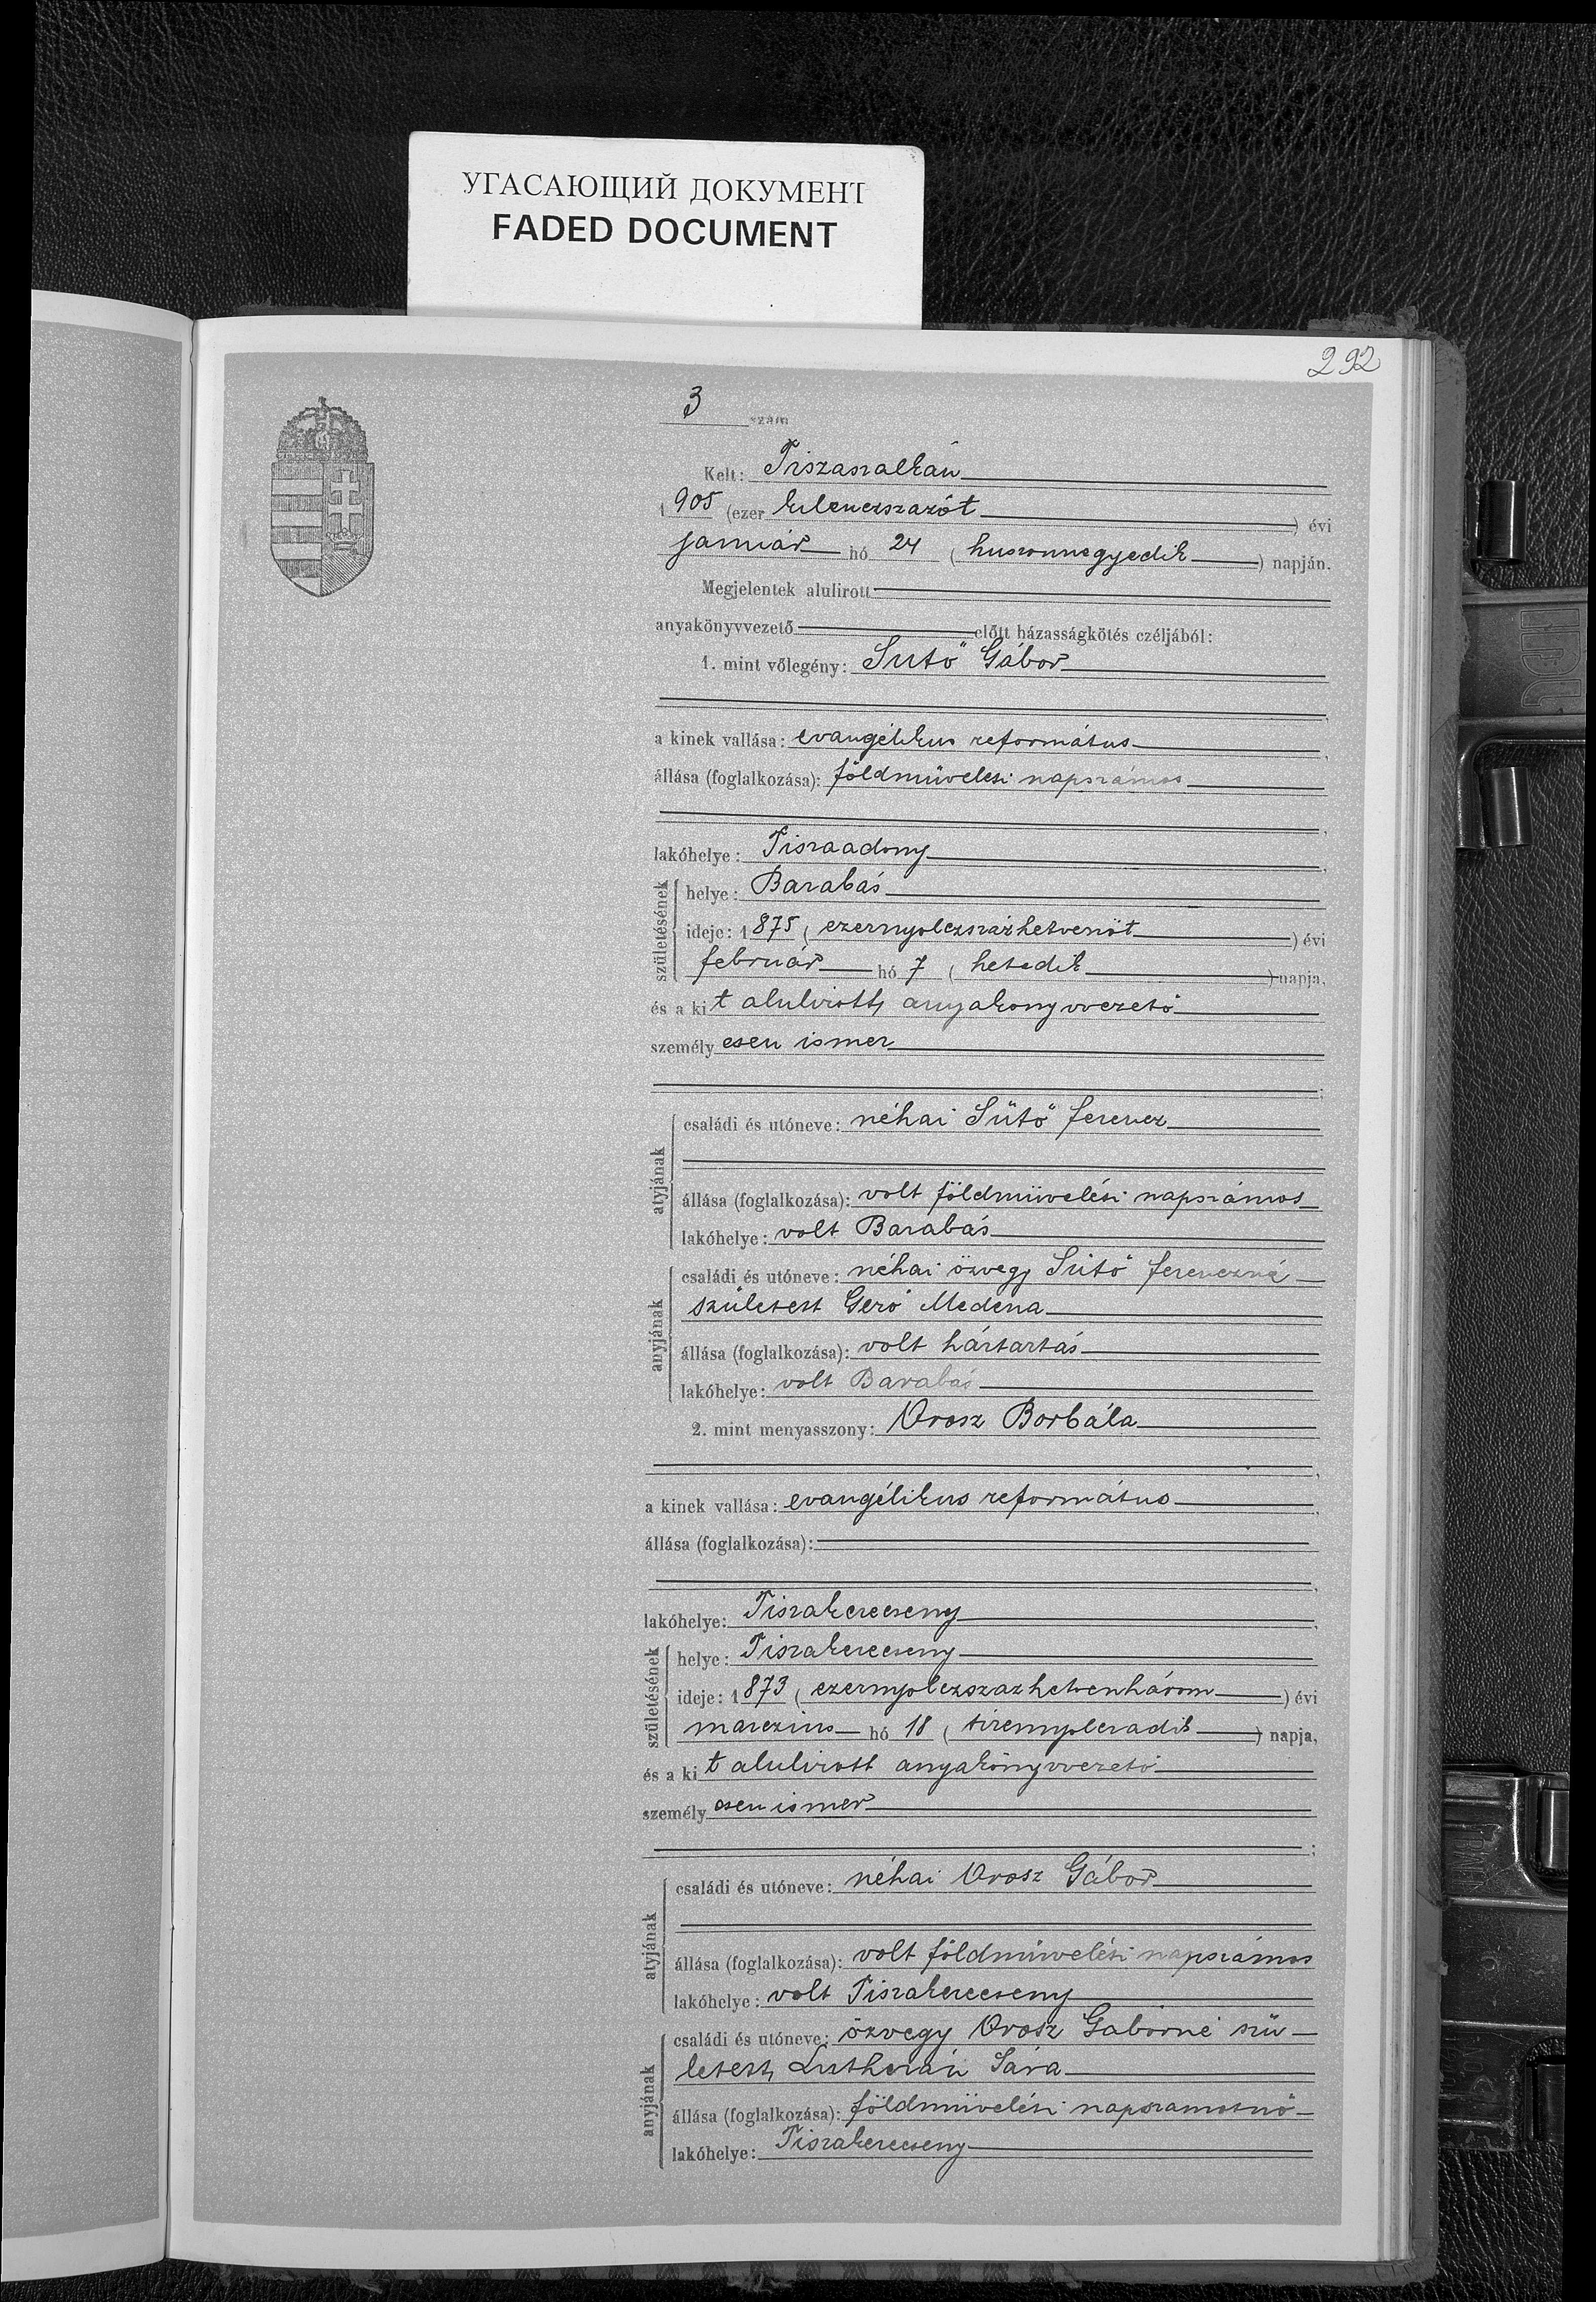 УГАСАЮЩИЙ ДОКУМЕНТ
FADED DOCUMENT
292
3 szám
Kelt: Tiszaszalkán
1905 (ezer kilenczszázöt) évi
január hó 24 (huszonnegyedik) napján.
Megjelentek alulirott
anyakönyvvezető előtt házasságkötés czéljából:
1. mint vőlegény: Sütő Gábor
a kinek vallása: evangélikus református
állása (foglalkozása): földmüvelési napszámos
lakóhelye: Tiszaadony
születésének
helye: Barabás
ideje: 1875 (ezernyolczszázhetvenöt) évi
február hó 7 (hetedik) napja,
és a kit alulirott anyakönyvvezető
személyesen ismer
atyjának
családi és utóneve: néhai Sütő Ferencz
állása (foglalkozása): volt földmüvelési napszámos
lakóhelye: volt Barabás
anyjának
családi és utóneve: néhai özvegy Sütő Ferenczné
született Gerő Medena
állása (foglalkozása): volt háztartás
lakóhelye: volt Barabás
2. mint menyasszony: Orosz Borbála
a kinek vallása: evangélikus református
állása (foglalkozása):
lakóhelye: Tiszakerecseny
születésének
helye: Tiszakerecseny
ideje: 1873 (ezernyolczszázhetvenhárom) évi
marczius hó 18 (tizennyolczadik) napja,
és a kit alulirott anyakönyvvezető
személyesen ismer
atyjának
családi és utóneve: néhai Orosz Gábor
állása (foglalkozása): volt földmüvelési napszámos
lakóhelye: volt Tiszakerecseny
anyjának
családi és utóneve: özvegy Orosz Gáborné szü-
letett Lutherán Sára
állása (foglalkozása): földmüvelési napszamosnő
lakóhelye: Tiszakerecseny